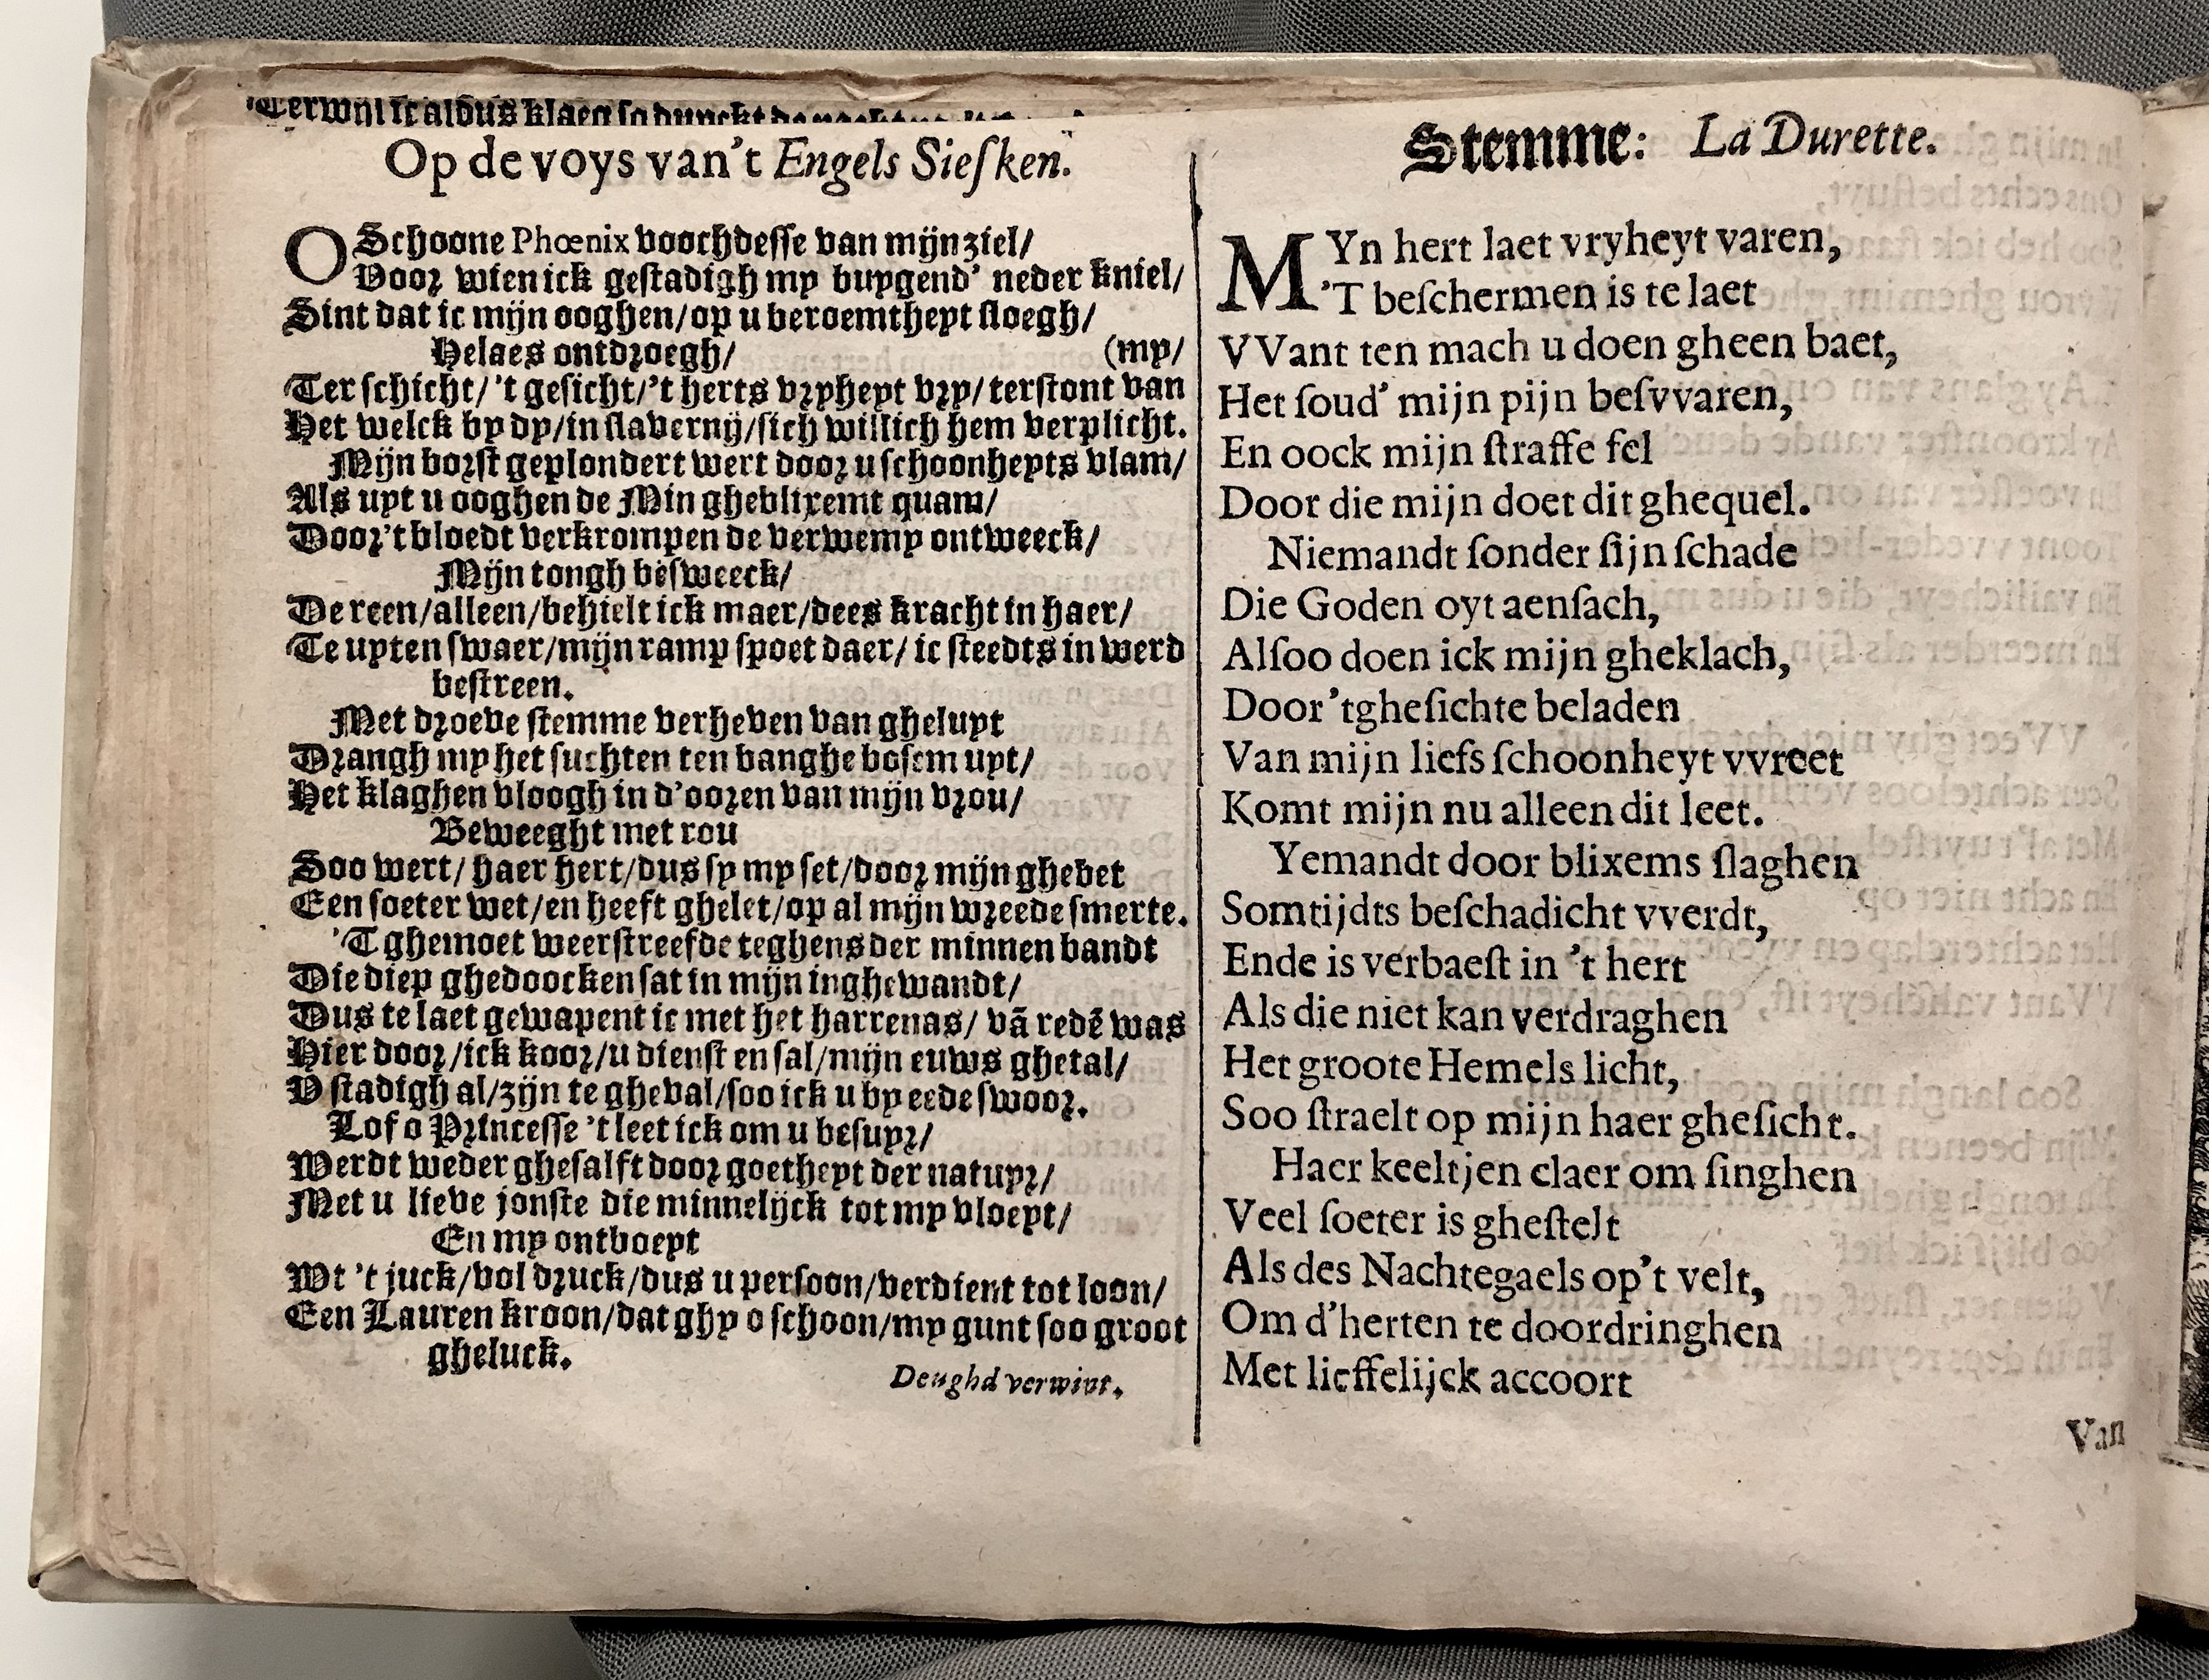 Op de voys van't Engels Sieſken.
O Schoone Phœnix voochdeſſe van mijn ziel/
Voor wien ick geſtadigh my buygend' neder kniel/
Sint dat ic mijn ooghen/op u beroemtheyt ſloegh/
Helaes ontdroegh/ (my/
Ter ſchicht/'t geſicht/'t herts vryheyt vry/terſtont van
Het welck by dy/in ſlavernij/ſich willich hem verplicht.
Mijn borſt geplondert wert door u ſchoonheyts vlam/
Als uyt u ooghen de Min gheblixemt quam/
Door't bloedt verkrompen de verwe my ontweeck/
Mijn tongh beſweeck/
De reen/alleen/behielt ick maer/dees kracht in haer/
Te uyten ſwaer/mijn ramp ſpoet daer/ic ſteedts in werd
beſtreen.
Met droeve ſtemme verheven van gheluyt
Drangh my het ſuchten ten banghe boſem uyt/
Het klaghen vloogh in d'ooren van mijn vrou/
Beweeght met rou
Soo wert/haer hert/dus ſy my ſet/door mijn ghebet
Een ſoeter wet/en heeft ghelet/op al mijn wreede ſmerte.
'T ghemoet weerſtreefde teghens der minnen bandt
Die diep ghedoocken ſat in mijn inghewandt/
Dus te laet gewapent ic met het harrenas/ vā redē was
Hier door/ick koor/u dienſt en ſal/mijn euws ghetal/
V ſtadigh al/zijn te gheval/ſoo ick u by eede ſwoor.
Lof o Princeſſe 't leet ick om u beſuyr/
Werdt weder gheſalft door goetheyt der natuyr/
Met u lieve jonſte die minnelijck tot my vloeyt/
En my ontboeyt
Wt 't juck/vol druck/dus u perſoon/verdient tot loon/
Een Lauren kroon/dat ghy o ſchoon/my gunt ſoo groot
gheluck.
Deughd verwint.
Stemme: La Durette.
MYn hert laet vryheyt varen,
'T beſchermen is te laet
VVant ten mach u doen gheen baet,
Het ſoud' mijn pijn beſvvaren,
En oock mijn ſtraffe fel
Door die mijn doet dit ghequel.
Niemandt ſonder ſijn ſchade
Die Goden oyt aenſach,
Alſoo doen ick mijn gheklach,
Door 'tgheſichte beladen
Van mijn liefs ſchoonheyt vvreet
Komt mijn nu alleen dit leet.
Yemandt door blixems ſlaghen
Somtijdts beſchadicht vverdt,
Ende is verbaeſt in 't hert
Als die niet kan verdraghen
Het groote Hemels licht,
Soo ſtraelt op mijn haer gheſicht.
Haer keeltjen claer om ſinghen
Veel ſoeter is gheſtelt
Als des Nachtegaels op't velt,
Om d'herten te doordringhen
Met lieffelijck accoort
Van